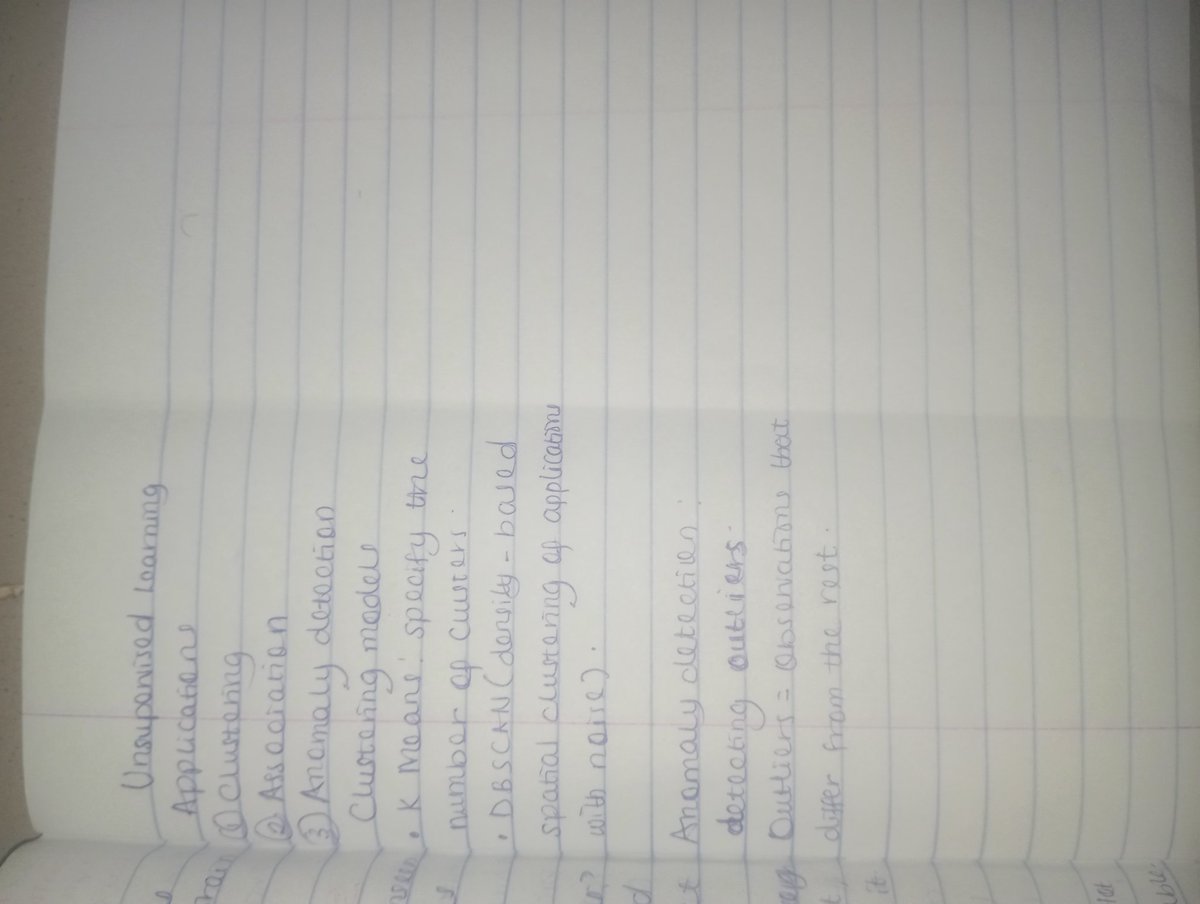 Unsupervised learning
Applications
① Clustering
② Association
③ Anomaly detection
Clustering models
• K Means: specify the
number of clusters.
• DBSCAN (density-based
spatial clustering of applications
with noise).
Anomaly detection:
detecting outliers.
Outliers = observations that
differ from the rest.
it.